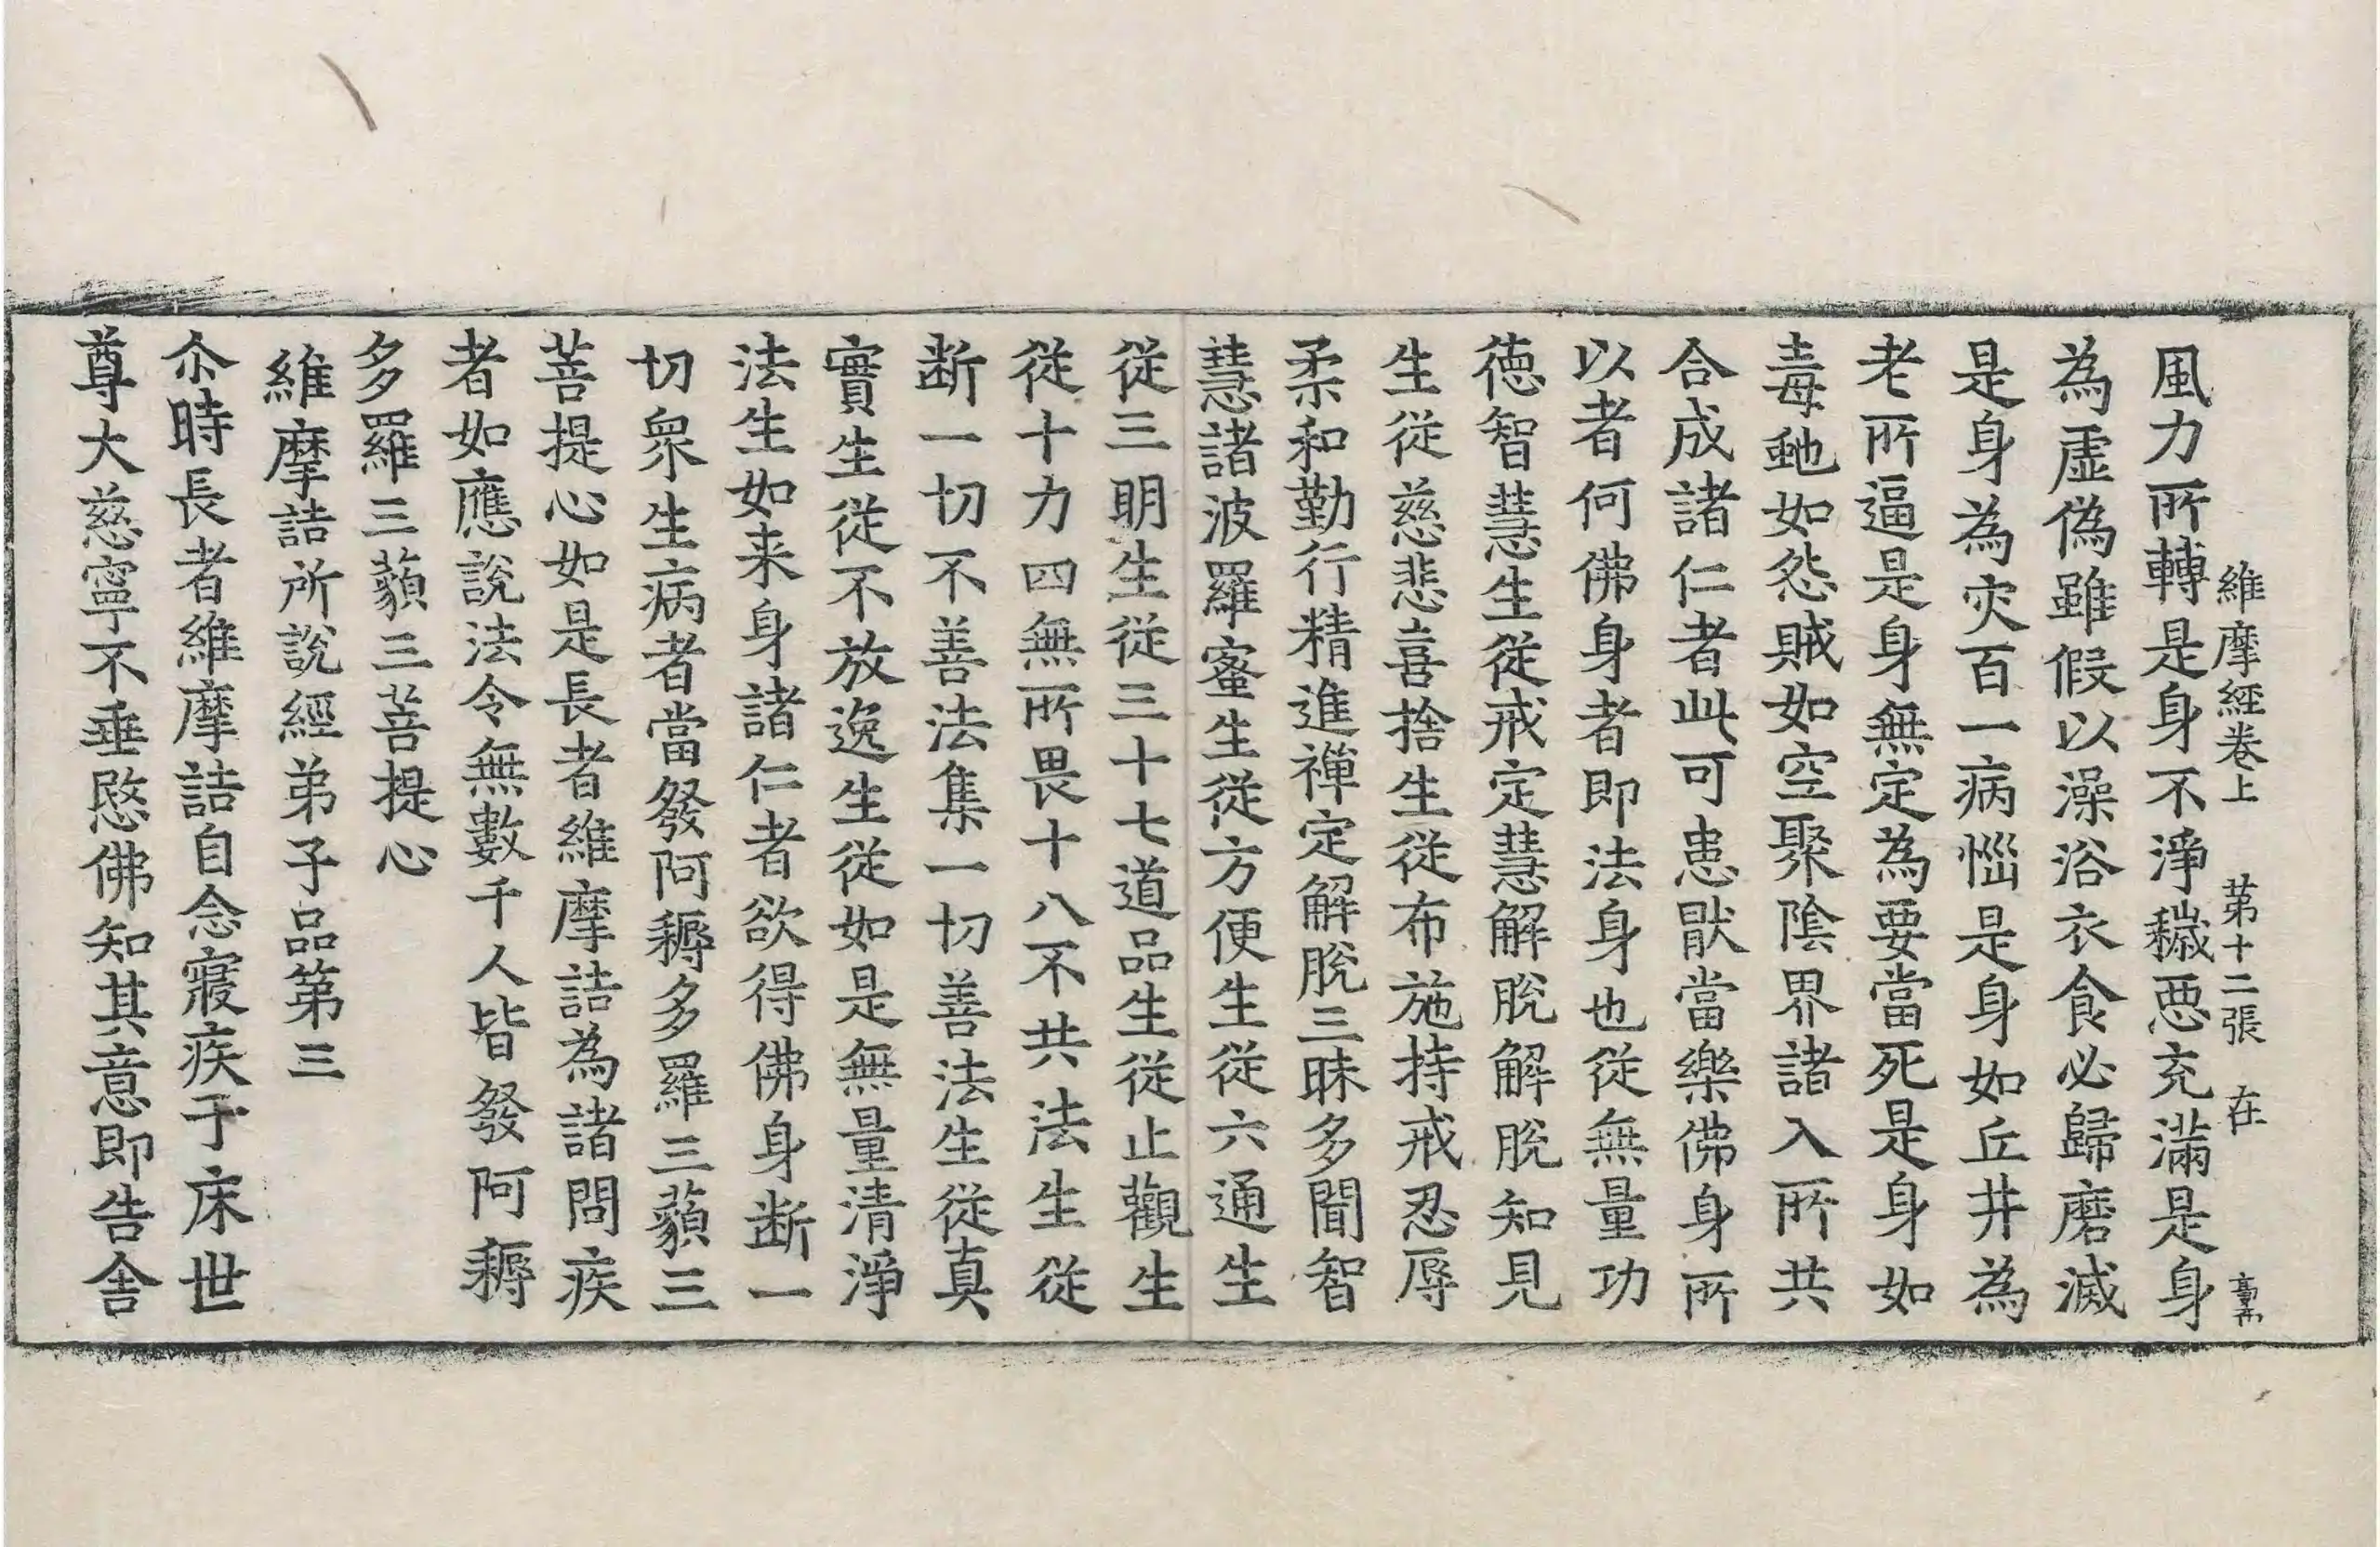 維摩經卷上　第十二張　在
風力所轉是身不淨穢惡充滿是身
為虛偽雖假以澡浴衣食必歸磨滅
是身為灾百一病惱是身如丘井為
老所逼是身無定為要當死是身如
毒虵如怨賊如空聚陰界諸入所共
合成諸仁者此可患猒當樂佛身所
以者何佛身者即法身也從無量功
德智慧生從戒定慧解脫解脫知見
生從慈悲喜捨生從布施持戒忍辱
柔和勤行精進禪定解脫三昧多聞智
慧諸波羅蜜生從方便生從六通生
從三明生從三十七道品生從止觀生
從十力四無所畏十八不共法生從
断一切不善法集一切善法生從真
實生從不放逸生從如是無量清淨
法生如来身諸仁者欲得佛身断一
切衆生病者當發阿耨多羅三藐三
菩提心如是長者維摩詰為諸問疾
者如應說法令無數千人皆發阿耨
多羅三藐三菩提心
維摩詰所說經弟子品第三
尒時長者維摩詰自念寢疾于床世
尊大慈寧不垂愍佛知其意即告舍